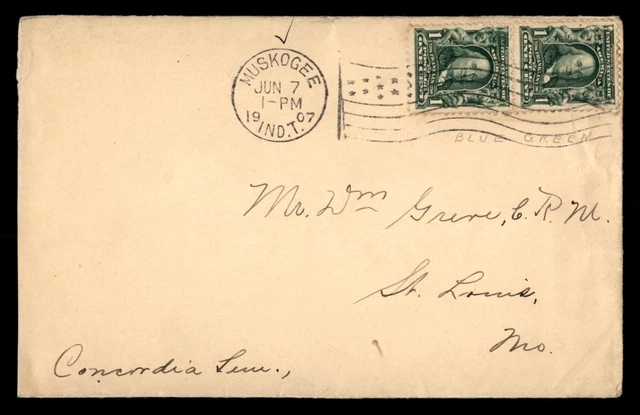 MUSKOGEE
JUN 7
1-PM
1907
IND.T.
1
1
BLUE GREEN
Mr. Wm Greve, C. R. M.
St. Louis,
Mo.
Concordia Sem.,